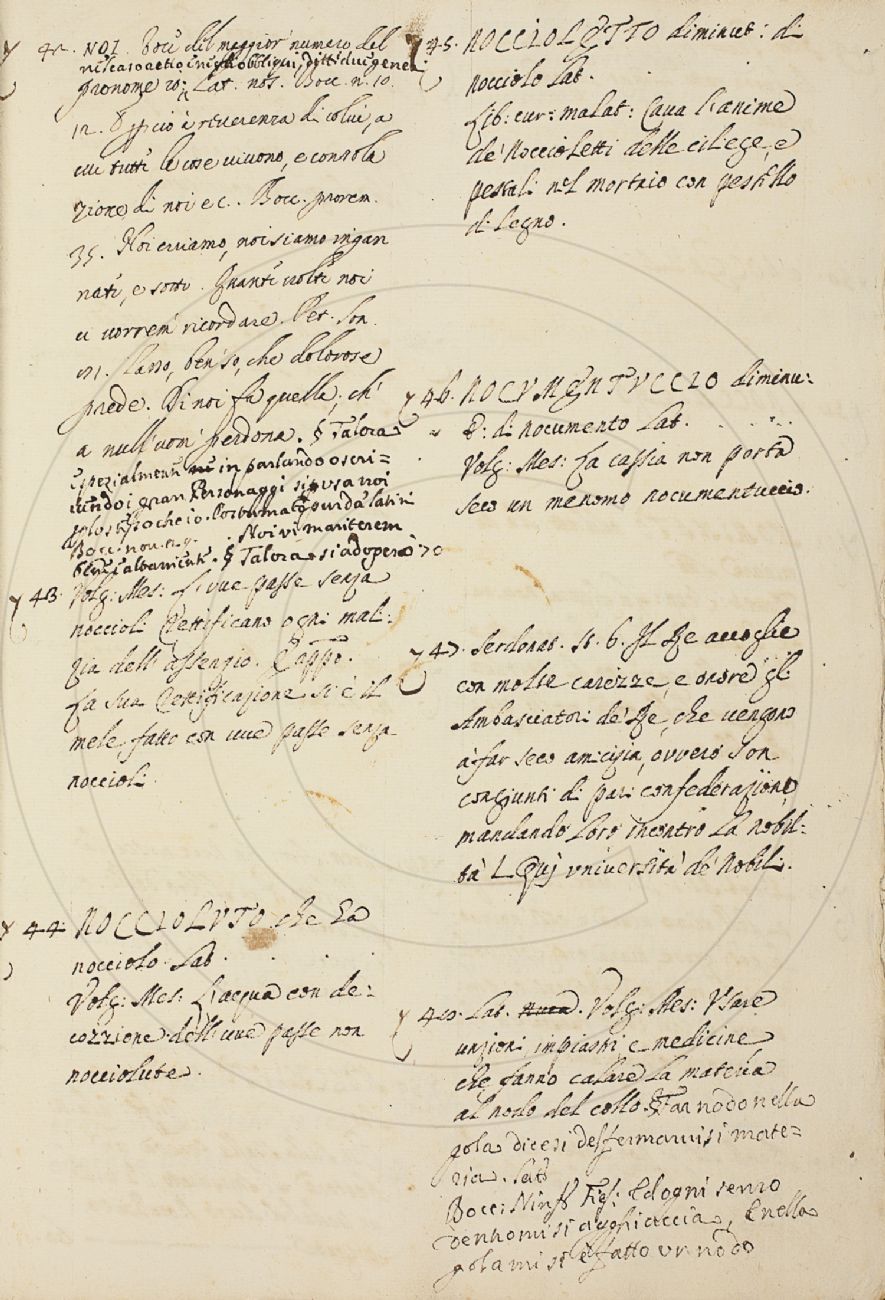 42. NOI. Voce del maggior numero del
nel caso retto, e negli obliqui, di tutti due i generi
pronome io. Lat. nos. Bocc. n. 10.
12. Officio è reverenza di colui, a
cui tutte le cose vivono, e consola
zione di noi ec. Bocc. proem.
35. Noi erviamo, noi siamo ingan
nati, e sotti. Quante volte noi
ci vorrem ricordare. Pet. Son.
Lasso, ben so, che dolorose
prede. Di noi fa quella, ch'
a null'uom perdona. § Talora
spezialmente in parlando o scri=
vendo i gran Personaggi si usa noi
Bocc. nov. Noi vi mariterem
§ Talora si adopera
43. Volg: Mes: L'uve passe senza
noccioli rettificano ogni mali:
zia dell'assenzio. E appo.
La sua rettificazione si è il
mele fatto con uve passe senza
noccioli.
44. NOCCIOLUTO che ha
nocciolo. Lat.
Volg: Mes: L'acqua con de:
cozzione dell'uve passe non
nocciolute.
45. NOCCIOLETTO diminut: di
nocciolo Lat.
Lib: cur: malat: Cava l'anime
de' noccioletti delle ciliege, e
pestali nel mortaio con pestello
di legno.
46. NOCUMENTUCCIO diminu:
t: di nocumento Lat.
Volg: Mes: La cassia non porta
seco un menomo nocumentuccio.
47. Serdonat. St. 6. Il Re accoglie
con molte carezze, e onore gli
Ambasciatori de' Re, che vengono
à far seco amicizia, ovvero son
congiunti di pari confederazione
mandando loro incontro la nobil:
tà L Qui università de' nobili.
Lat. Volg: Mes: Usare
unzioni impiastri e medicine
che fanno calare la materia
al nodo del collo. § Far nodo nella
gola dicesi del fermarvisi mate=
ria. Lat
Bocc: Ninf. Fies: Ed ogni senso
dentro mi si agghiaccia, E nella
gola mi si è fatto un nodo